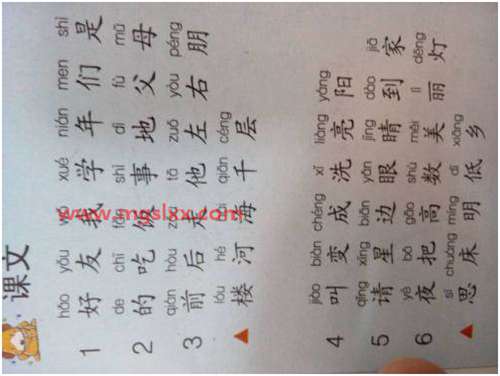 课文
hǎo yǒu wǒ xué nián men shì
1 好 友 我 学 年 们 是
de chī fàn shì dì fù mǔ
2 的 吃 饭 事 地 父 母
qián hòu tā zuǒ yòu péng
3 前 后 他 左 右 朋
lóu hé hǎi qiān céng
楼 河 海 千 层
jiào biàn chéng xǐ liàng yáng
4 叫 变 成 洗 亮 阳
qǐng xīng biān yǎn jīng dào jiā
5 请 星 边 眼 睛 到 家
yè bǎ gāo shù měi lì dēng
6 夜 把 高 数 美 丽 灯
sī chuáng míng dī xiāng
思 床 明 低 乡